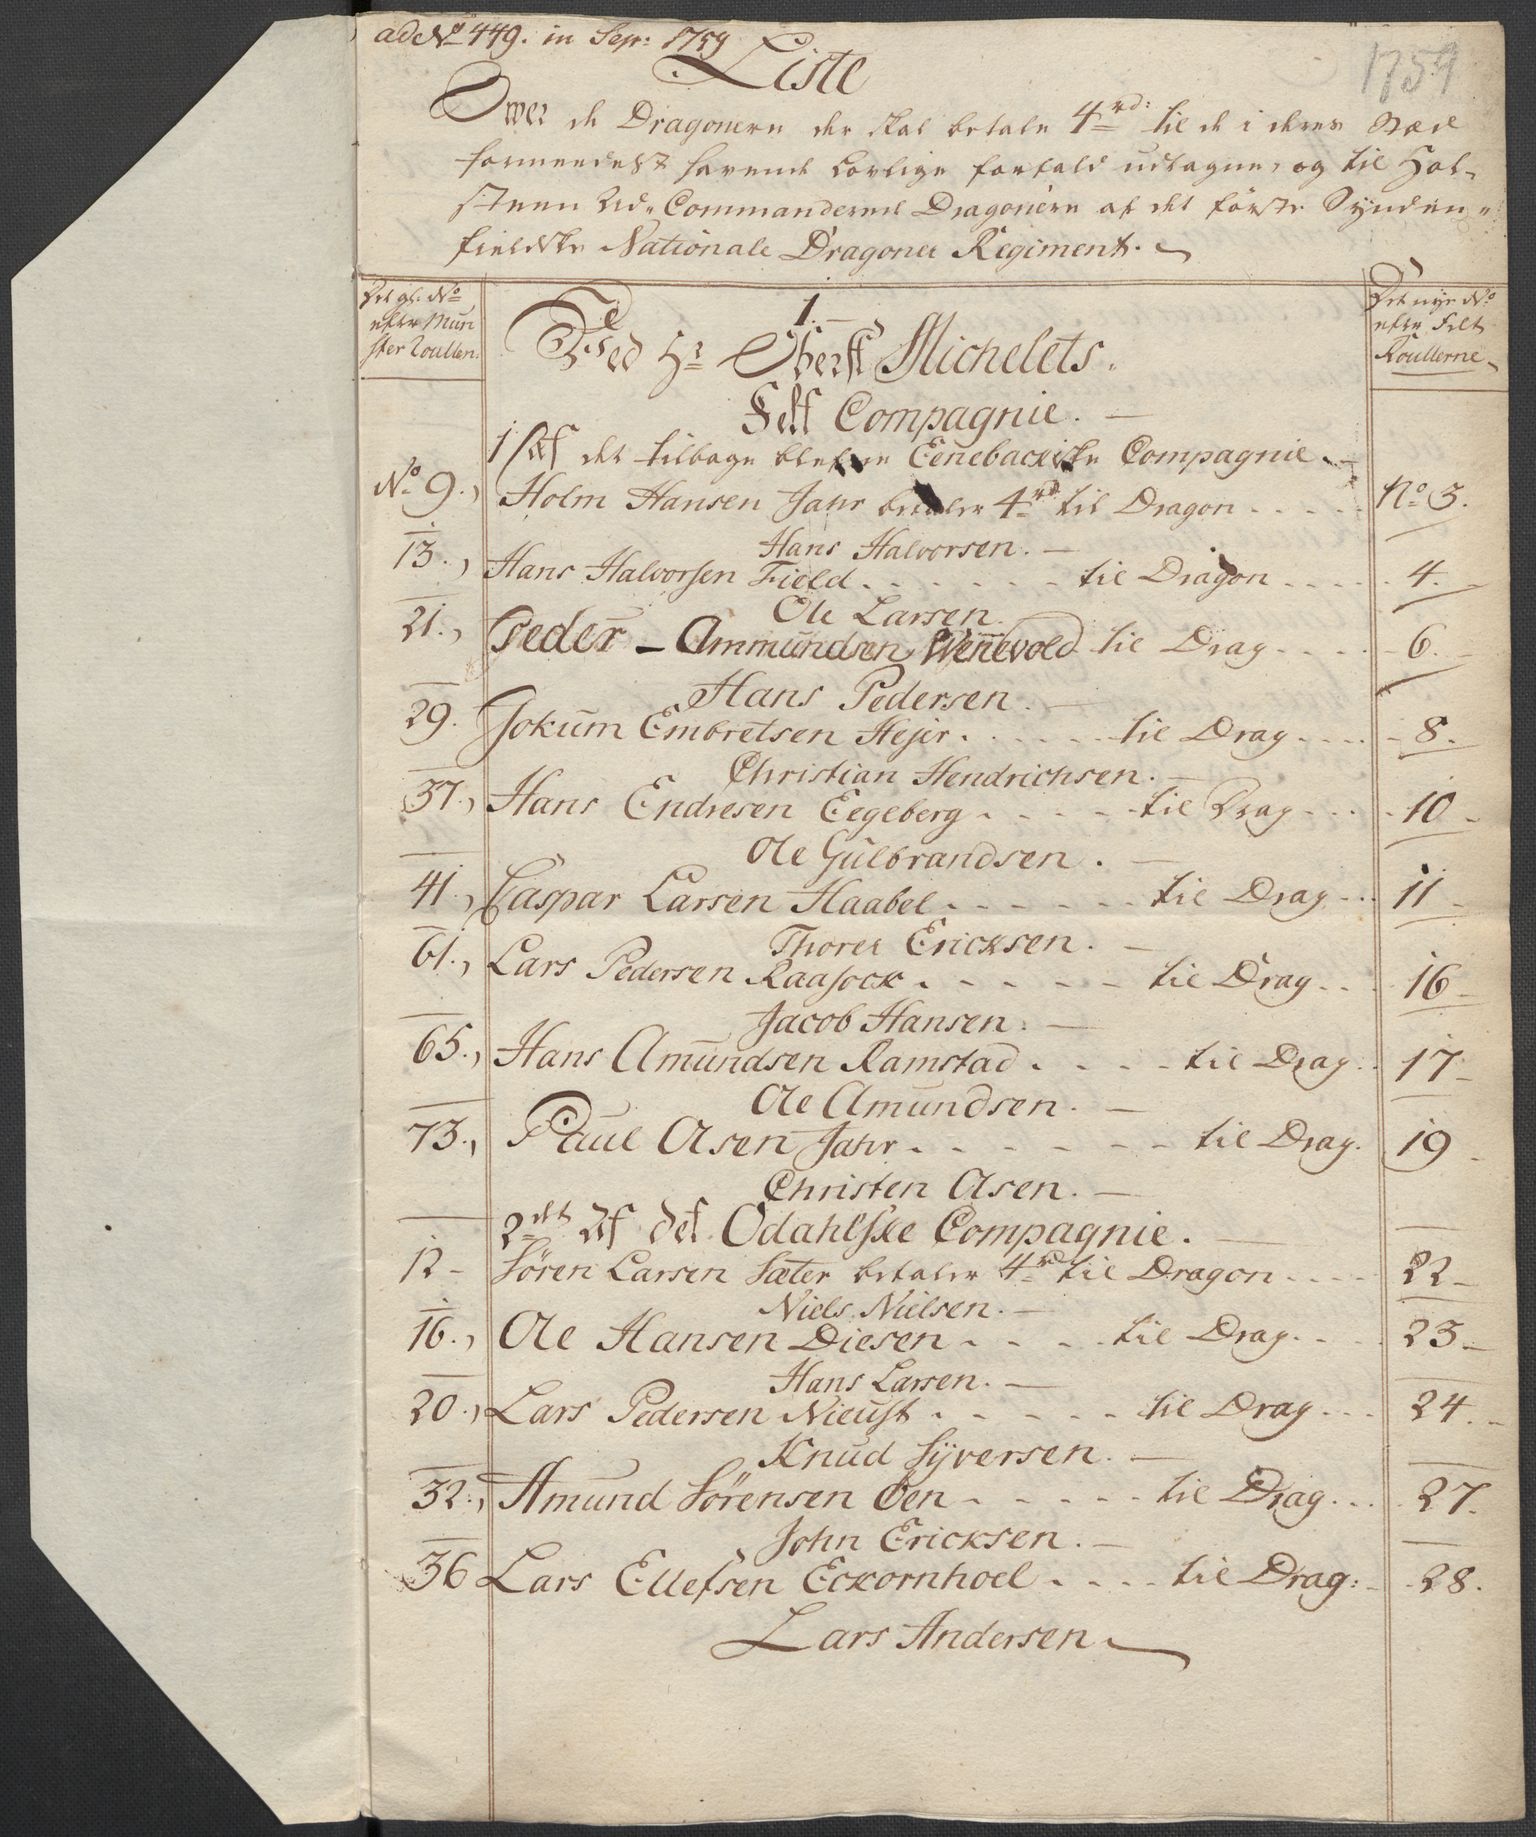 ad No 449. in Sepr: 1759
1759
Liste
Over de Dragonere der skal betale 4rd: til de i deres Stæd
formeedelst havende lovlige forfald udtagne, og til Hol-
steen Ud-Commanderede Dragonere af det første Synden-
fieldske Nationale Dragoner Regiment.
Det gl. No
efter Mun
ster Roullen.
Det nye No
efter Felt
Roullerne
1.
Ved Hr Oberst Michelets.
Self Compagnie.
1 Af det tilbage blefne Eenebackiske Compagnie.
No 9., Holm Hansen Jahr betaler 4rd til Dragon . . . . . No 3.
Hans Halvorsen.
13., Hans Halvorsen Field . . . . . . . til Dragon . . . . . 4.
Ole Larsen.
21., Peder Ammundsen Wenevold til Drag . . . . 6.
Hans Pedersen.
29. Jokum Embretsen Hejer . . . . . . til Drag . . . . . 8.
Christian Hendrichsen.
37., Hans Endresen Eegeberg . . . . . til Drag . . . . 10
Ole Gulbrandsen.
41., Caspar Larsen Haabel . . . . . . . til Drag . . . 11
Thorer Ericksen.
61., Lars Pedersen Raasock . . . . . . til Drag . . . 16
Jacob Hansen.
65., Hans Amundsen Ramstad . . . . . til Drag . . 17
Ole Amundsen.
73., Paul Olsen Jahr . . . . . . . til Drag. 19
Christen Olsen.
2det Af det Odahlske Compagnie.
12 Sören Larsen Sæter betaler 4rd til Dragon . . . . 22
Niels Nielsen.
16., Ole Hansen Diesen . . . . . til Drag . . . . 23
Hans Larsen.
20., Lars Pedersen Nieust . . . . . . til Drag . . . 24.
Knud Syversen.
32., Amund Sörensen Öen . . . . . . til Drag . . . . 27.
John Ericksen.
36 Lars Ellefsen Eckornhoel . . . . til Drag: 28.
Lars Andersen